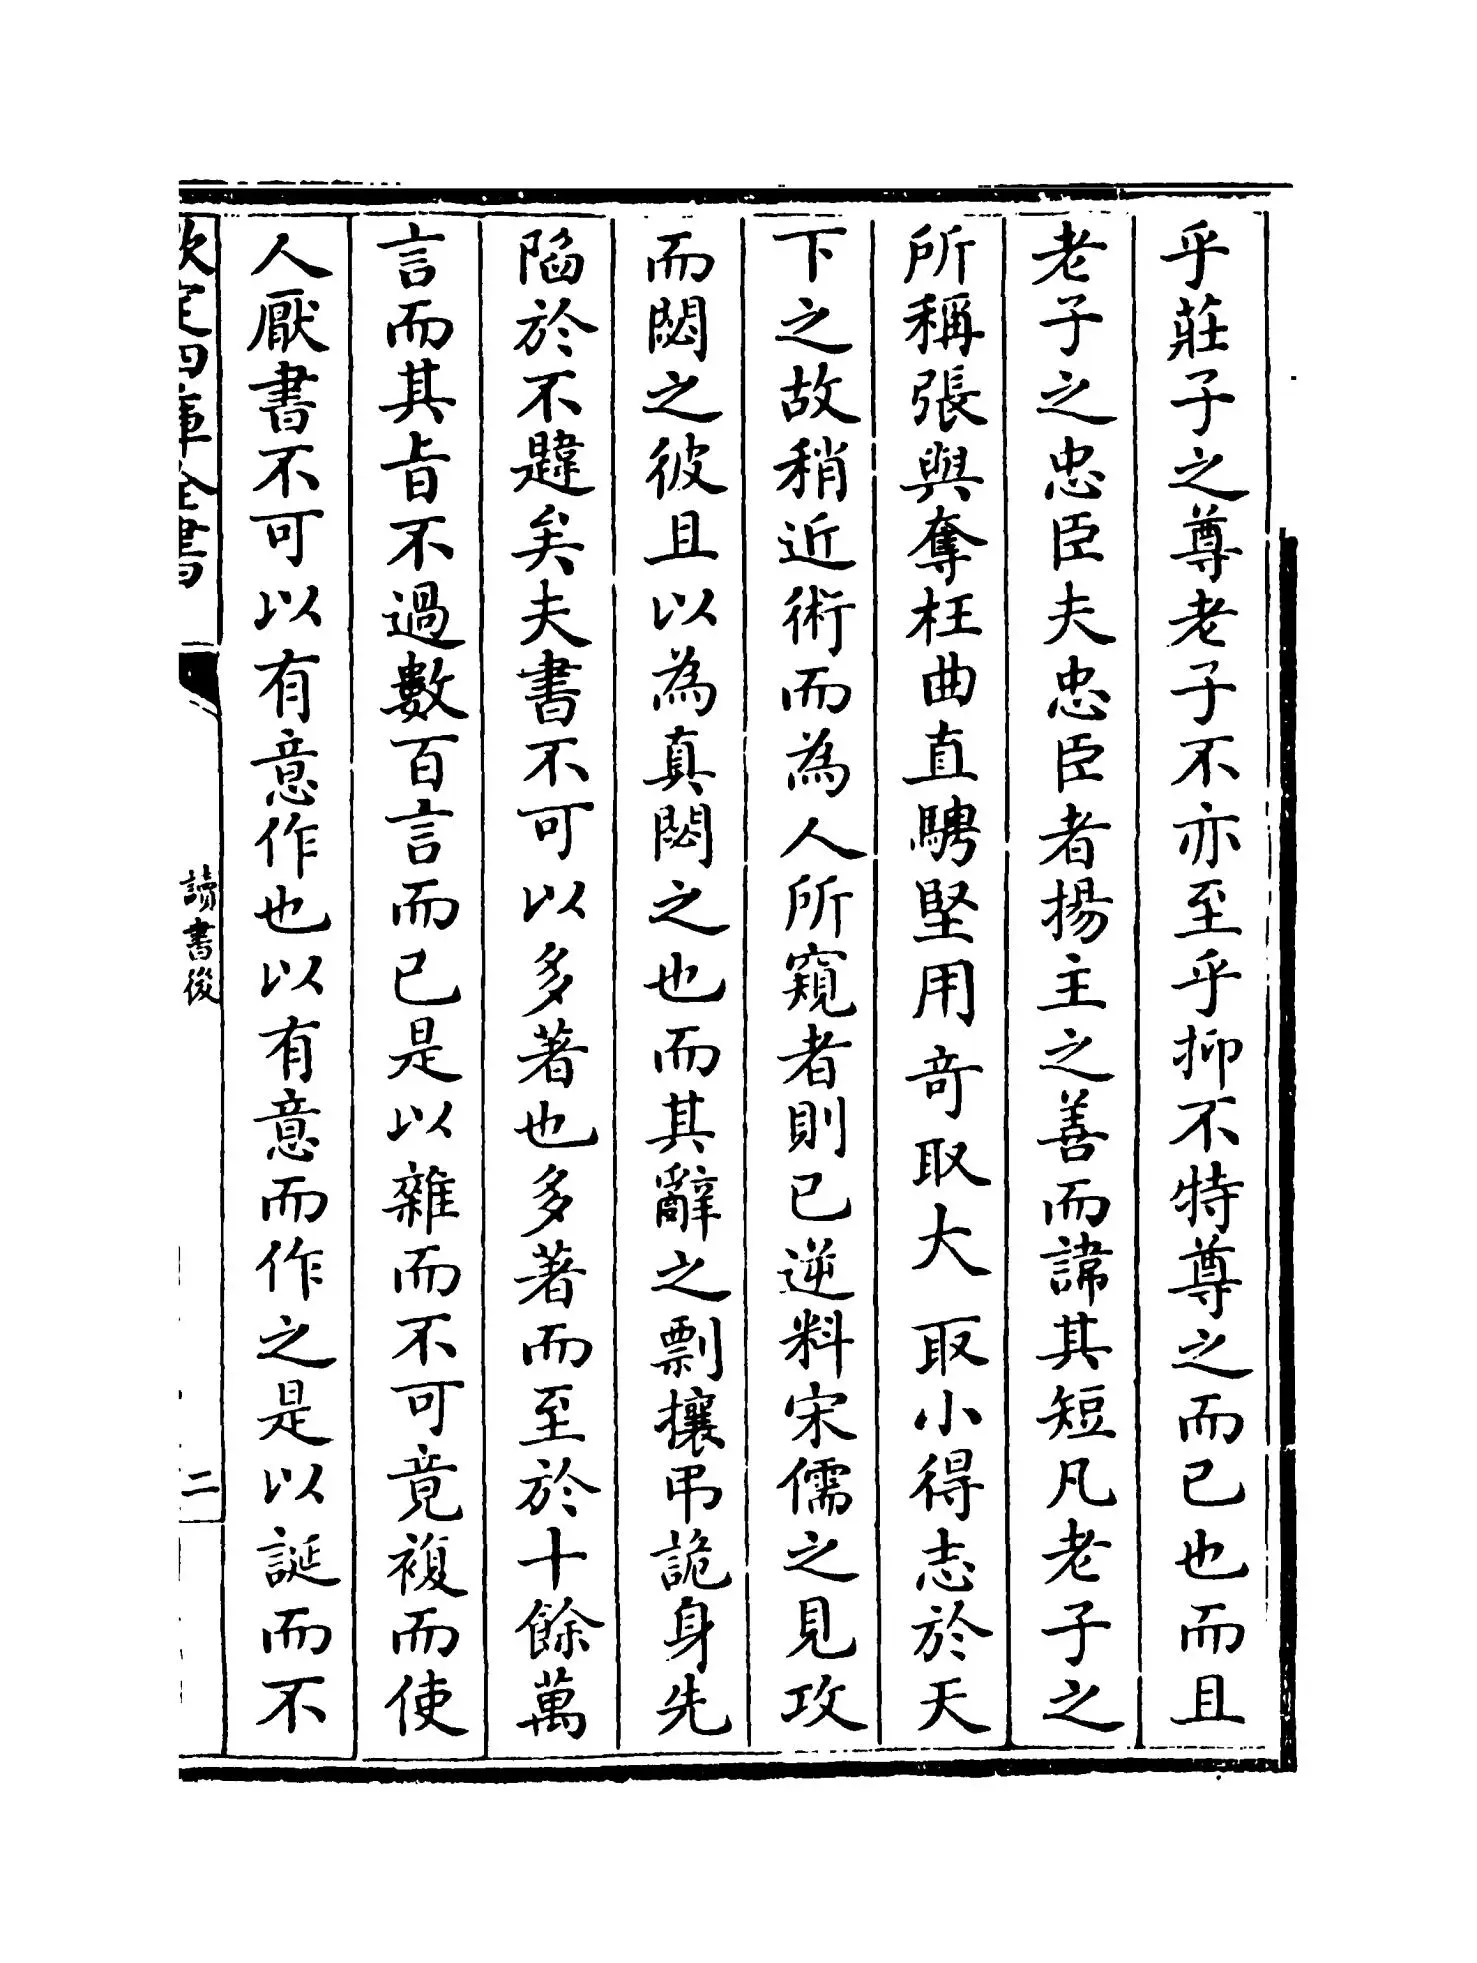 乎莊子之尊老子不亦至乎抑不特尊之而已也而且
老子之忠臣夫忠臣者揚主之善而諱其短凡老子之
所稱張與奪枉曲直騁堅用奇取大取小得志於天
下之故稍近術而為人所窺者則已逆料宋儒之見攻
而閟之彼且以為真閟之也而其辭之剽攘弔詭身先
陷於不韙矣夫書不可以多著也多著而至於十餘萬
言而其旨不過數百言而已是以雜而不可竟複而使
人厭書不可以有意作也以有意而作之是以誕而不
欽定四庫全書
讀書後
二